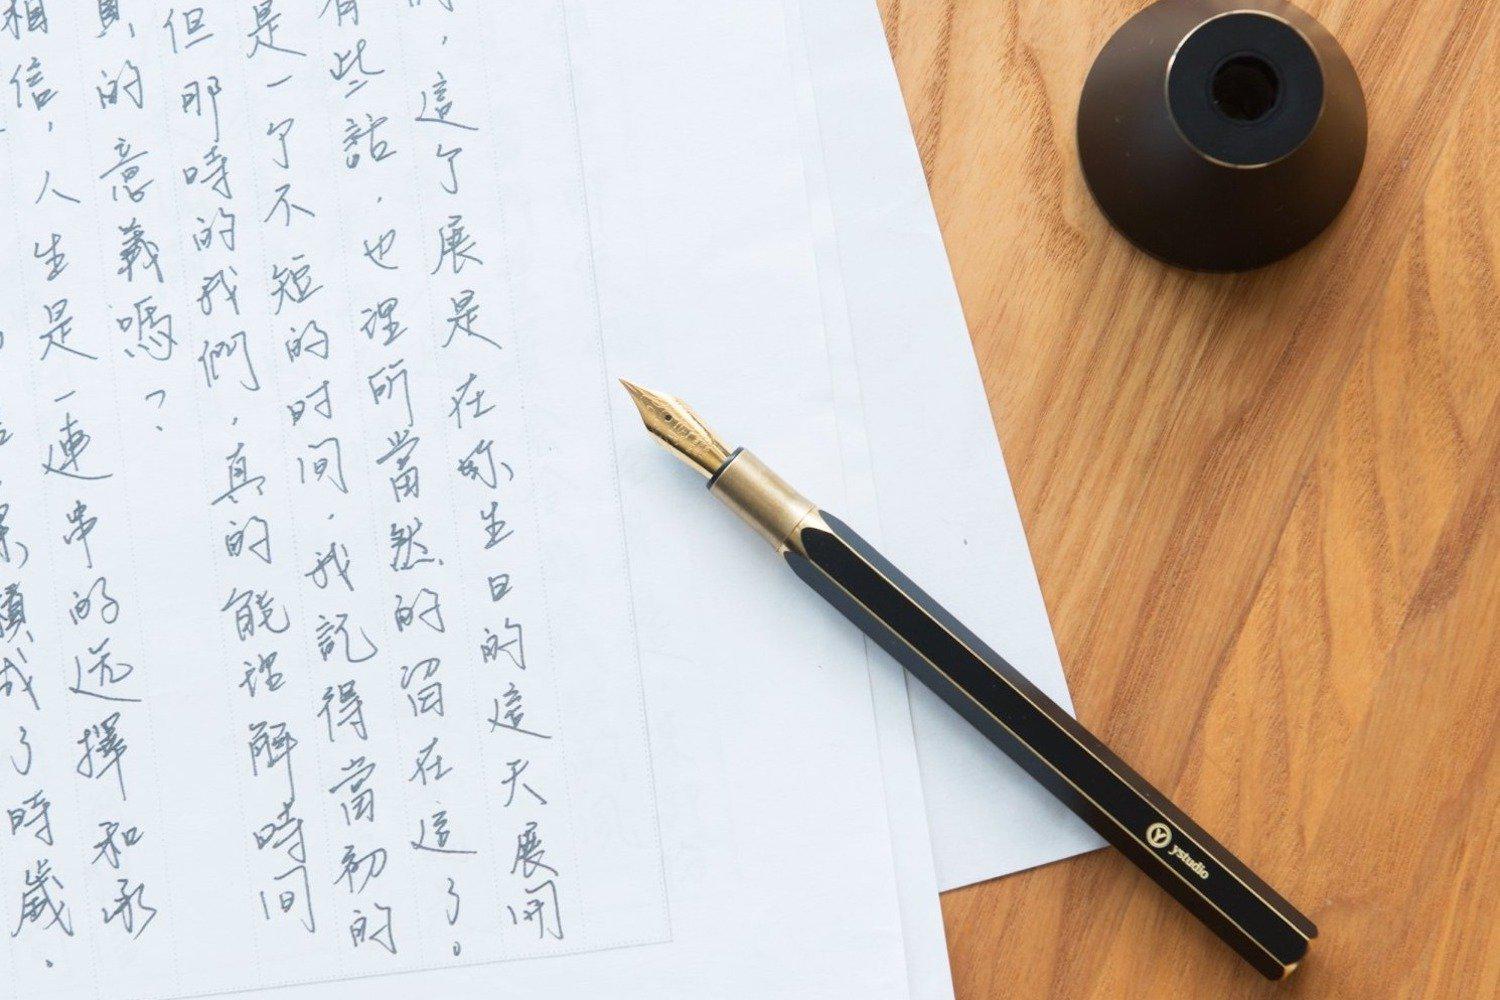 ，這个展是在妳生日的這天展開
有些話，也理所當然的留在這了。
是一个不短的时间，我記得當初的
但那時的我們，真的能理解時间
真的意義嗎？
相信，人生是一連串的选擇和承
積成了時歲，
ystudio